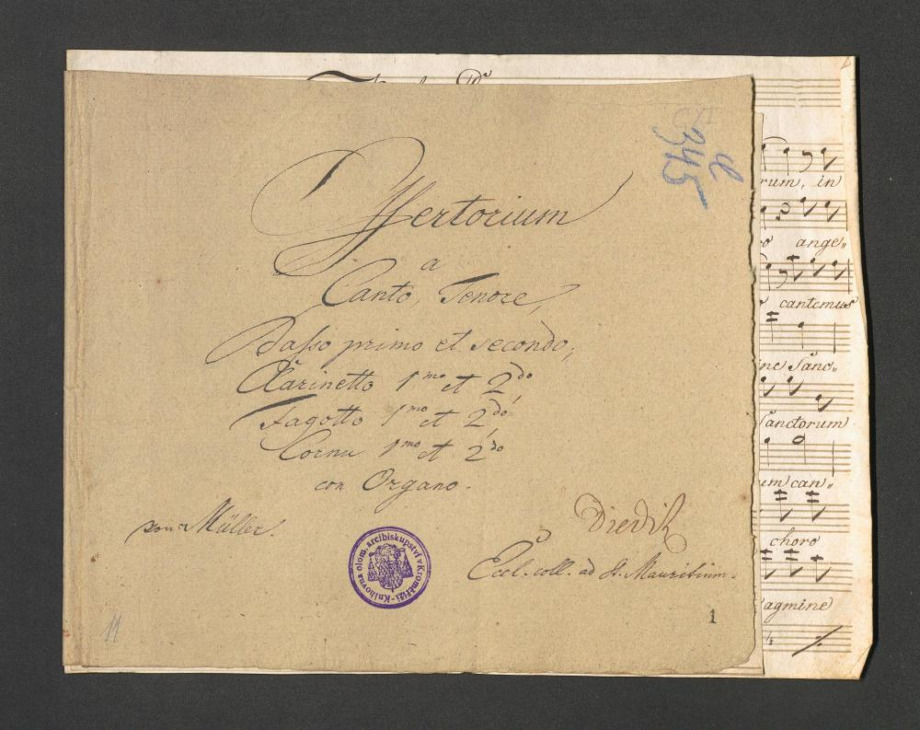 345
Offertorium
a
Canto, Tenore,
Basso primo et secondo,
Clarinetto 1mo et 2do,
Fagotto 1mo et 2do,
Cornu 1mo et 2do
con Organo.
Müller.
Eccl. coll. ad S. Mauritium.
Knihovna olom. arcibiskupství v Kroměříži
11
1
rum, in
ange„
cantemus
Sanc„
Sanctorum
um can„
choro
agmine